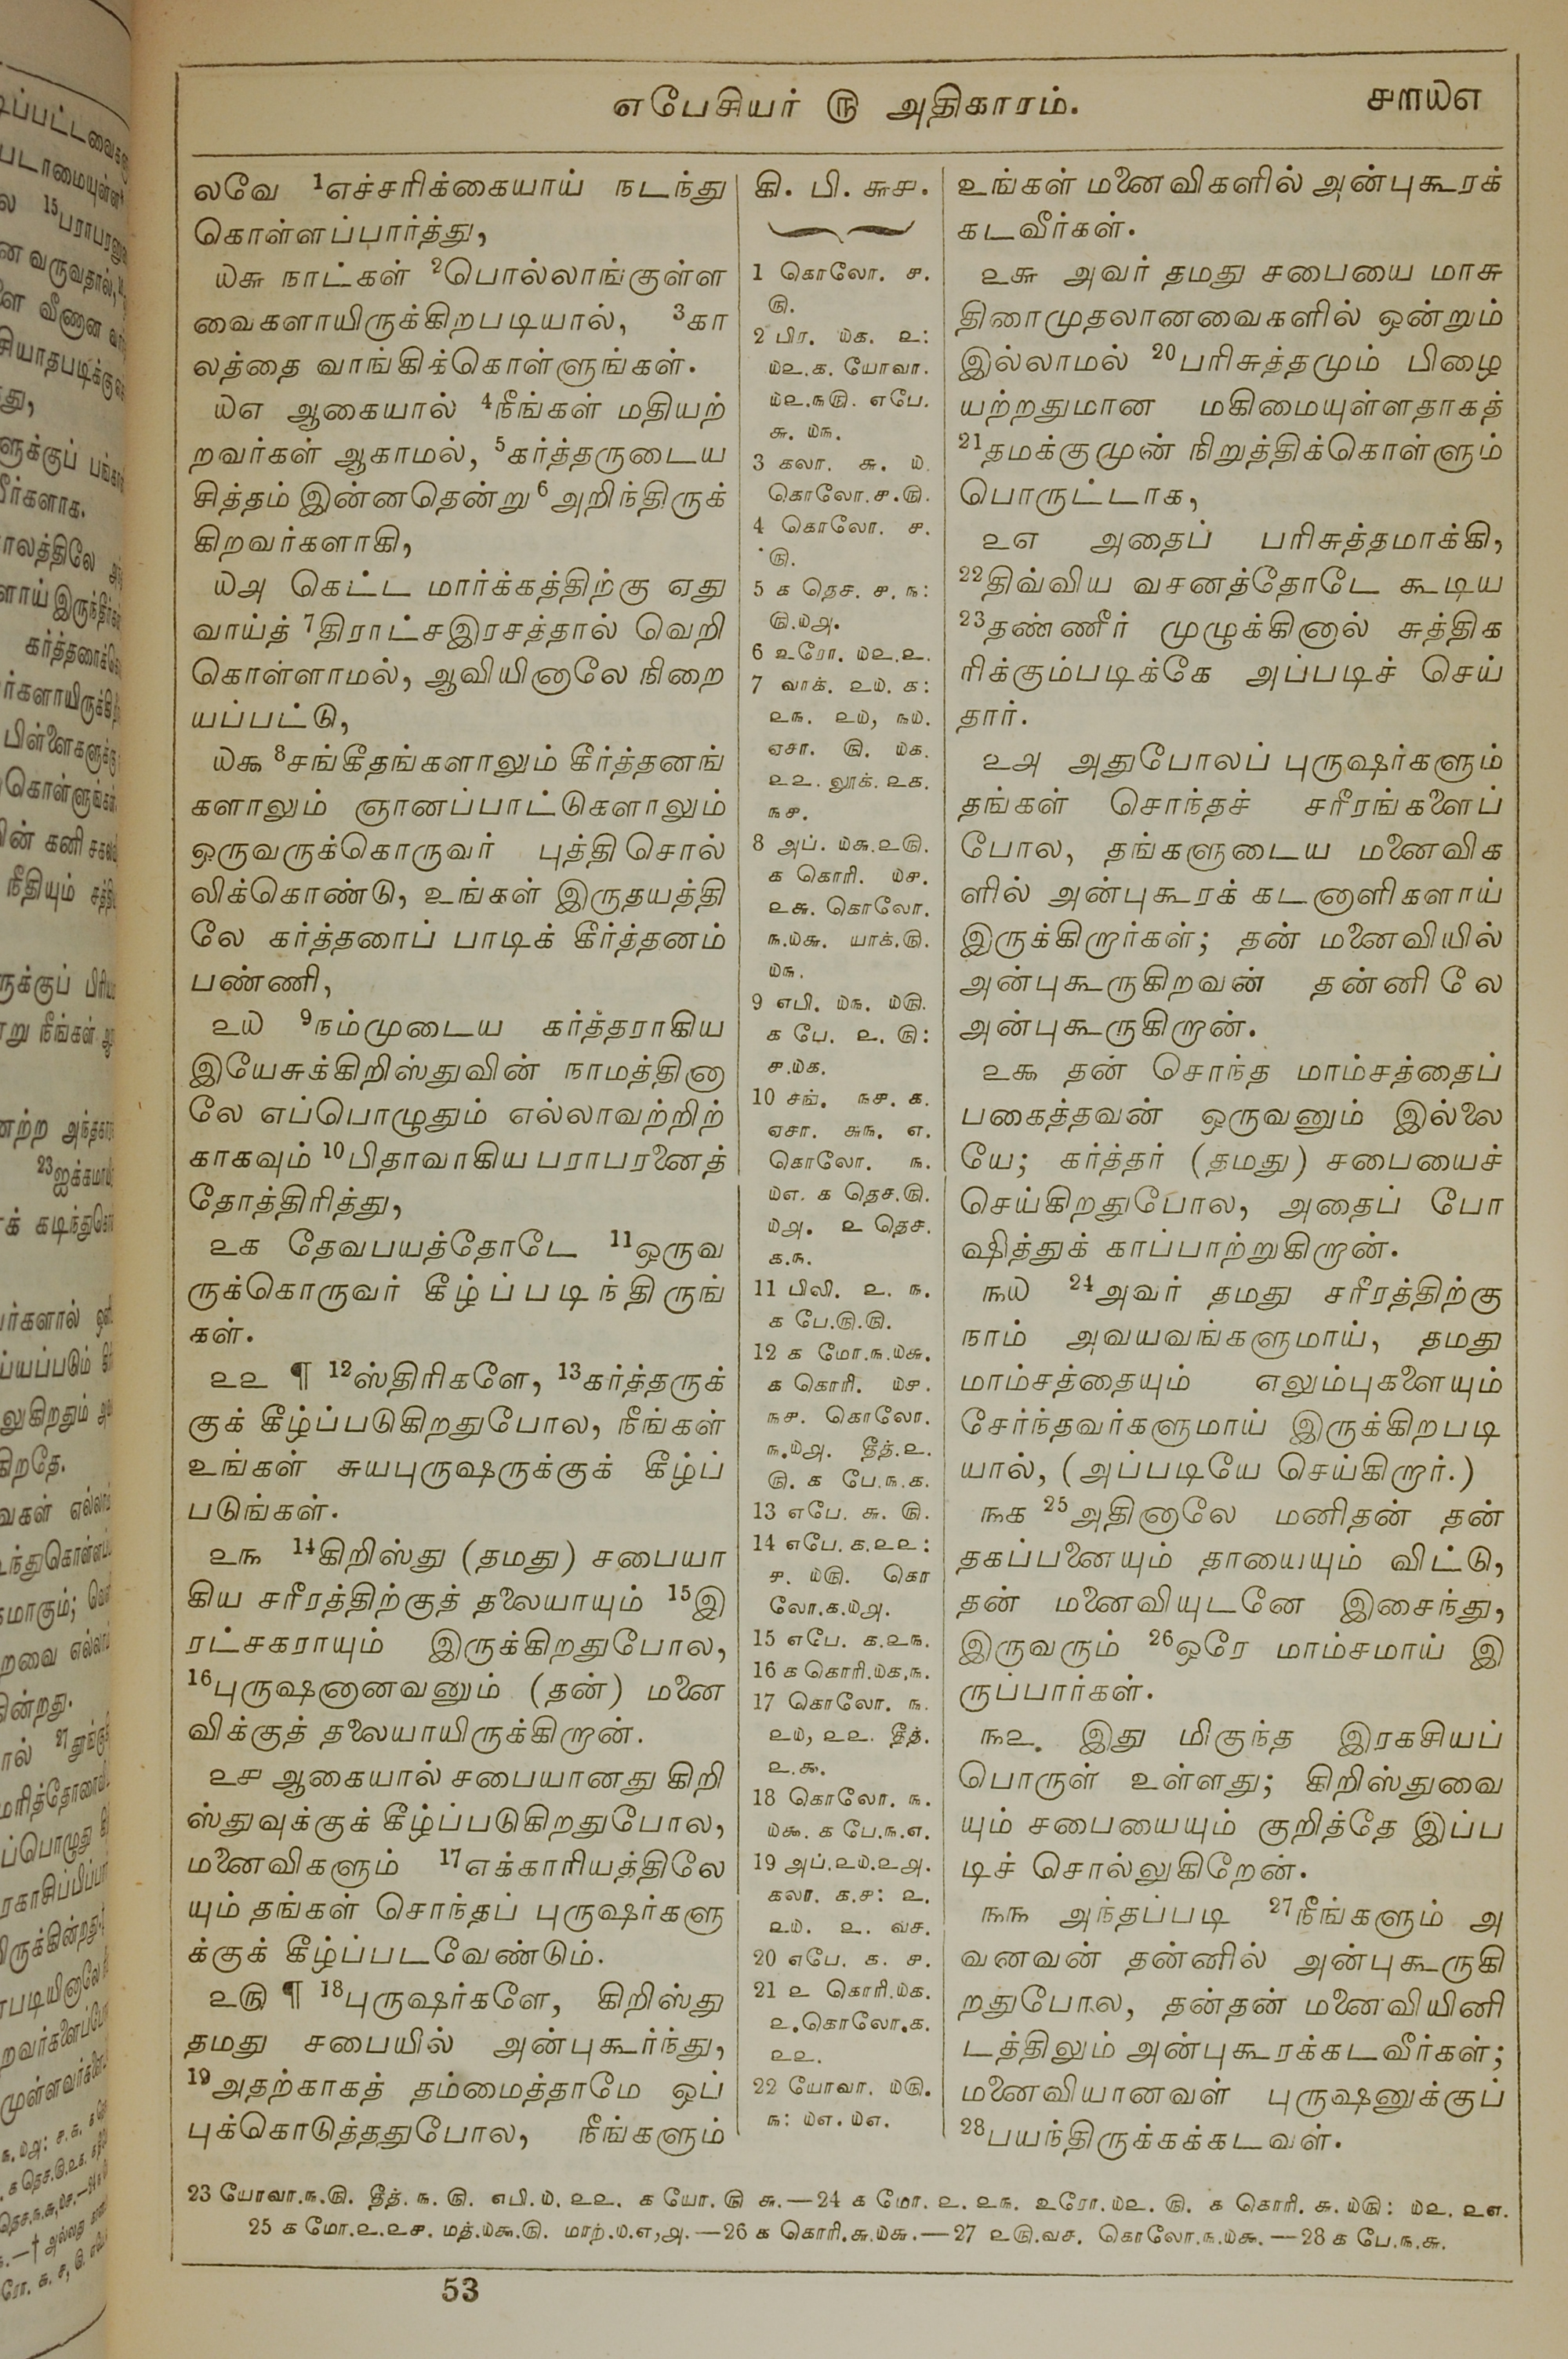 எபேசியர் ௫ அதிகாரம்.
௪௱௰௭
லவே 1எச்சரிக்கையாய் நடந்து
கொள்ளப்பார்த்து,
௰௬ நாட்கள் 2பொல்லாங்குள்ள
வைகளாயிருக்கிறபடியால், 3கா
லத்தை வாங்கிக்கொள்ளுங்கள்.
௰௭ ஆகையால் 4நீங்கள் மதியற்
றவர்கள் ஆகாமல், 5கர்த்தருடைய
சித்தம் இன்னதென்று 6அறிந்திருக்
கிறவர்களாகி,
௰௮ கெட்ட மார்க்கத்திற்கு ஏது
வாய்த் 7திராட்சஇரசத்தால் வெறி
கொள்ளாமல், ஆவியினாலே நிறை
யப்பட்டு,
௰௯ 8சங்கீதங்களாலும் கீர்த்தனங்
களாலும் ஞானப்பாட்டுகளாலும்
ஒருவருக்கொருவர் புத்திசொல்
லிக்கொண்டு, உங்கள் இருதயத்தி
லே கர்த்தரைப் பாடிக் கீர்த்தனம்
பண்ணி,
௨௰ 9நம்முடைய கர்த்தராகிய
இயேசுக்கிறிஸ்துவின் நாமத்தினா
லே எப்பொழுதும் எல்லாவற்றிற்
காகவும் 10பிதாவாகிய பராபரனைத்
தோத்திரித்து,
௨௧ தேவபயத்தோடே 11ஒருவ
ருக்கொருவர் கீழ்ப்படிந்திருங்
கள்.
௨௨ ¶ 12ஸ்திரிகளே, 13கர்த்தருக்
குக் கீழ்ப்படுகிறதுபோல, நீங்கள்
உங்கள் சுயபுருஷருக்குக் கீழ்ப்
படுங்கள்.
௨௩ 14கிறிஸ்து (தமது) சபையா
கிய சரீரத்திற்குத் தலையாயும் 15இ
ரட்சகராயும் இருக்கிறதுபோல,
16புருஷனானவனும் (தன்) மனை
விக்குத் தலையாயிருக்கிறான்.
௨௪ ஆகையால் சபையானது கிறி
ஸ்துவுக்குக் கீழ்ப்படுகிறதுபோல,
மனைவிகளும் 17எக்காரியத்திலே
யும் தங்கள் சொந்தப் புருஷர்களு
க்குக் கீழ்ப்படவேண்டும்.
௨௫ ¶ 18புருஷர்களே, கிறிஸ்து
தமது சபையில் அன்புகூர்ந்து,
19அதற்காகத் தம்மைத்தாமே ஒப்
புக்கொடுத்ததுபோல, நீங்களும்
கி. பி. ௬௪.
1 கொலோ. ௪.
௫.
2 பிர. ௰௧. ௨:
௰௨.௧. யோவா.
௰௨.௩௫. எபே.
௬. ௰௩.
3 கலா. ௬. ௰.
கொலோ.௪.௫.
4 கொலோ. ௪.
௫.
5 ௧ தெச. ௪. ௩:
௫.௰௮.
6 உரோ. ௰௨.௨.
7 வாக். ௨௰. ௧:
௨௩. ௨௰, ௩௰.
ஏசா. ௫. ௰௧.
௨௨. லூக். ௨௧.
௩௪.
8 அப். ௰௬.௨௫.
௧ கொரி. ௰௪.
௨௬. கொலோ.
௩.௰௬. யாக்.௫.
௰௩.
9 எபி. ௰௩. ௰௫.
௧ பே. ௨. ௫:
௪.௰௧.
10 சங். ௩௪. ௧.
ஏசா. ௬௩. ௭.
கொலோ. ௩.
௰௭. ௧ தெச.௫.
௰௮. ௨ தெச.
௧.௩.
11 பிலி. ௨. ௩.
௧ பே.௫.௫.
12 ௧ மோ.௩.௰௬.
௧ கொரி. ௰௪.
௩௪. கொலோ.
௩.௰௮. தீத்.௨.
௫. ௧ பே.௩.௧.
13 எபே. ௬. ௫.
14 எபே.௧.௨௨:
௪. ௰௫. கொ
லோ.௧.௰௮.
15 எபே. ௧.௨௩.
16 ௧ கொரி.௰௧.௩.
17 கொலோ. ௩.
௨௰, ௨௨. தீத்.
௨.௯.
18 கொலோ. ௩.
௰௯. ௧ பே.௩.௭.
19 அப்.௨௰.௨௮.
கலா. ௧.௪: ௨.
௨௰. ௨. வச.
20 எபே. ௧. ௪.
21 ௨ கொரி.௰௧.
௨.கொலோ.௧.
௨௨.
22 யோவா. ௰௫.
௩: ௰௭.௰௭.
உங்கள் மனைவிகளில் அன்புகூரக்
கடவீர்கள்.
௨௬ அவர் தமது சபையை மாசு
திரைமுதலானவைகளில் ஒன்றும்
இல்லாமல் 20பரிசுத்தமும் பிழை
யற்றதுமான மகிமையுள்ளதாகத்
21தமக்குமுன் நிறுத்திக்கொள்ளும்
பொருட்டாக,
௨௭ அதைப் பரிசுத்தமாக்கி,
22திவ்விய வசனத்தோடே கூடிய
23தண்ணீர் முழுக்கினால் சுத்திக
ரிக்கும்படிக்கே அப்படிச் செய்
தார்.
௨௮ அதுபோலப் புருஷர்களும்
தங்கள் சொந்தச் சரீரங்களைப்
போல, தங்களுடைய மனைவிக
ளில் அன்புகூரக் கடனாளிகளாய்
இருக்கிறார்கள்; தன் மனைவியில்
அன்புகூருகிறவன் தன்னிலே
அன்புகூருகிறான்.
௨௯ தன் சொந்த மாம்சத்தைப்
பகைத்தவன் ஒருவனும் இல்லை
யே; கர்த்தர் (தமது) சபையைச்
செய்கிறதுபோல, அதைப் போ
ஷித்துக் காப்பாற்றுகிறான்.
௩௰ 24அவர் தமது சரீரத்திற்கு
நாம் அவயவங்களுமாய், தமது
மாம்சத்தையும் எலும்புகளையும்
சேர்ந்தவர்களுமாய் இருக்கிறபடி
யால், (அப்படியே செய்கிறார்.)
௩௧ 25அதினாலே மனிதன் தன்
தகப்பனையும் தாயையும் விட்டு,
தன் மனைவியுடனே இசைந்து,
இருவரும் 26ஒரே மாம்சமாய் இ
ருப்பார்கள்.
௩௨. இது மிகுந்த இரகசியப்
பொருள் உள்ளது; கிறிஸ்துவை
யும் சபையையும் குறித்தே இப்ப
டிச் சொல்லுகிறேன்.
௩௩ அந்தப்படி 27நீங்களும் அ
வனவன் தன்னில் அன்புகூருகி
றதுபோல, தன்தன் மனைவியினி
டத்திலும் அன்புகூரக்கடவீர்கள்;
மனைவியானவள் புருஷனுக்குப்
28பயந்திருக்கக்கடவள்.
23 யோவா.௩.௫. தீத். ௩. ௫. எபி.௰. ௨௨. ௧ யோ. ௫ ௬.—24 ௧ மோ. ௨. ௨௩. உரோ.௰௨. ௫. ௧ கொரி. ௬. ௰௫: ௰௨. ௨௭.
25 ௧ மோ.௨.௨௪. மத்.௰௯.௫. மாற்.௰.௭,௮.—26 ௧ கொரி.௬.௰௬.—27 ௨௫.வச. கொலோ.௩.௰௯.—28 ௧ பே.௩.௬.
53